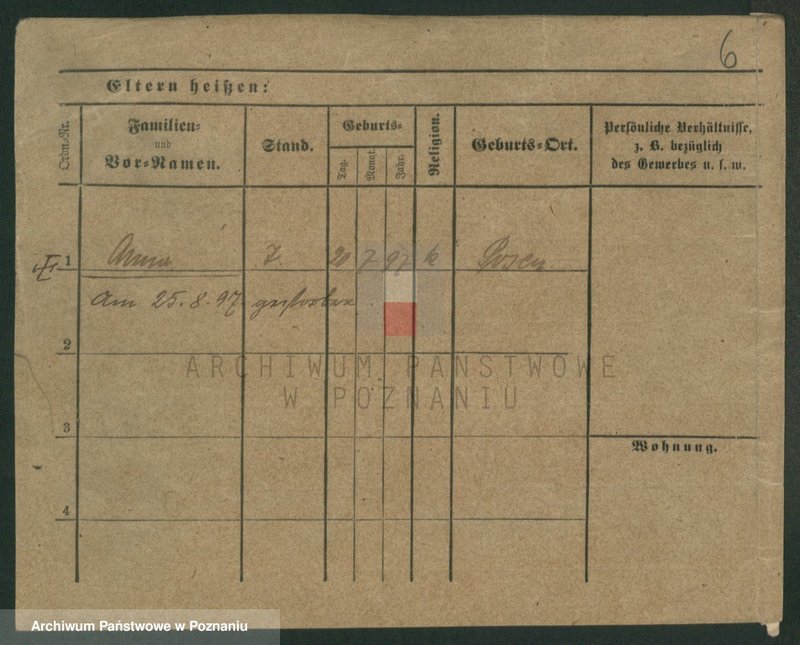 6
Eltern heißen:
Ordn.-Nr.
Familien-
und
Vor-Namen.
Stand.
Geburts-
Tag.
Monat.
Jahr.
Religion.
Geburts-Ort.
Persönliche Verhältnisse,
z. B. bezüglich
des Gewerbes u. s. w.
1 Anna T. 20 7 97 k Posen
Am 25.8.97 gestorben
2
ARCHIWUM PAŃSTWOWE
W POZNANIU
3
Wohnung.
4
Archiwum Państwowe w Poznaniu